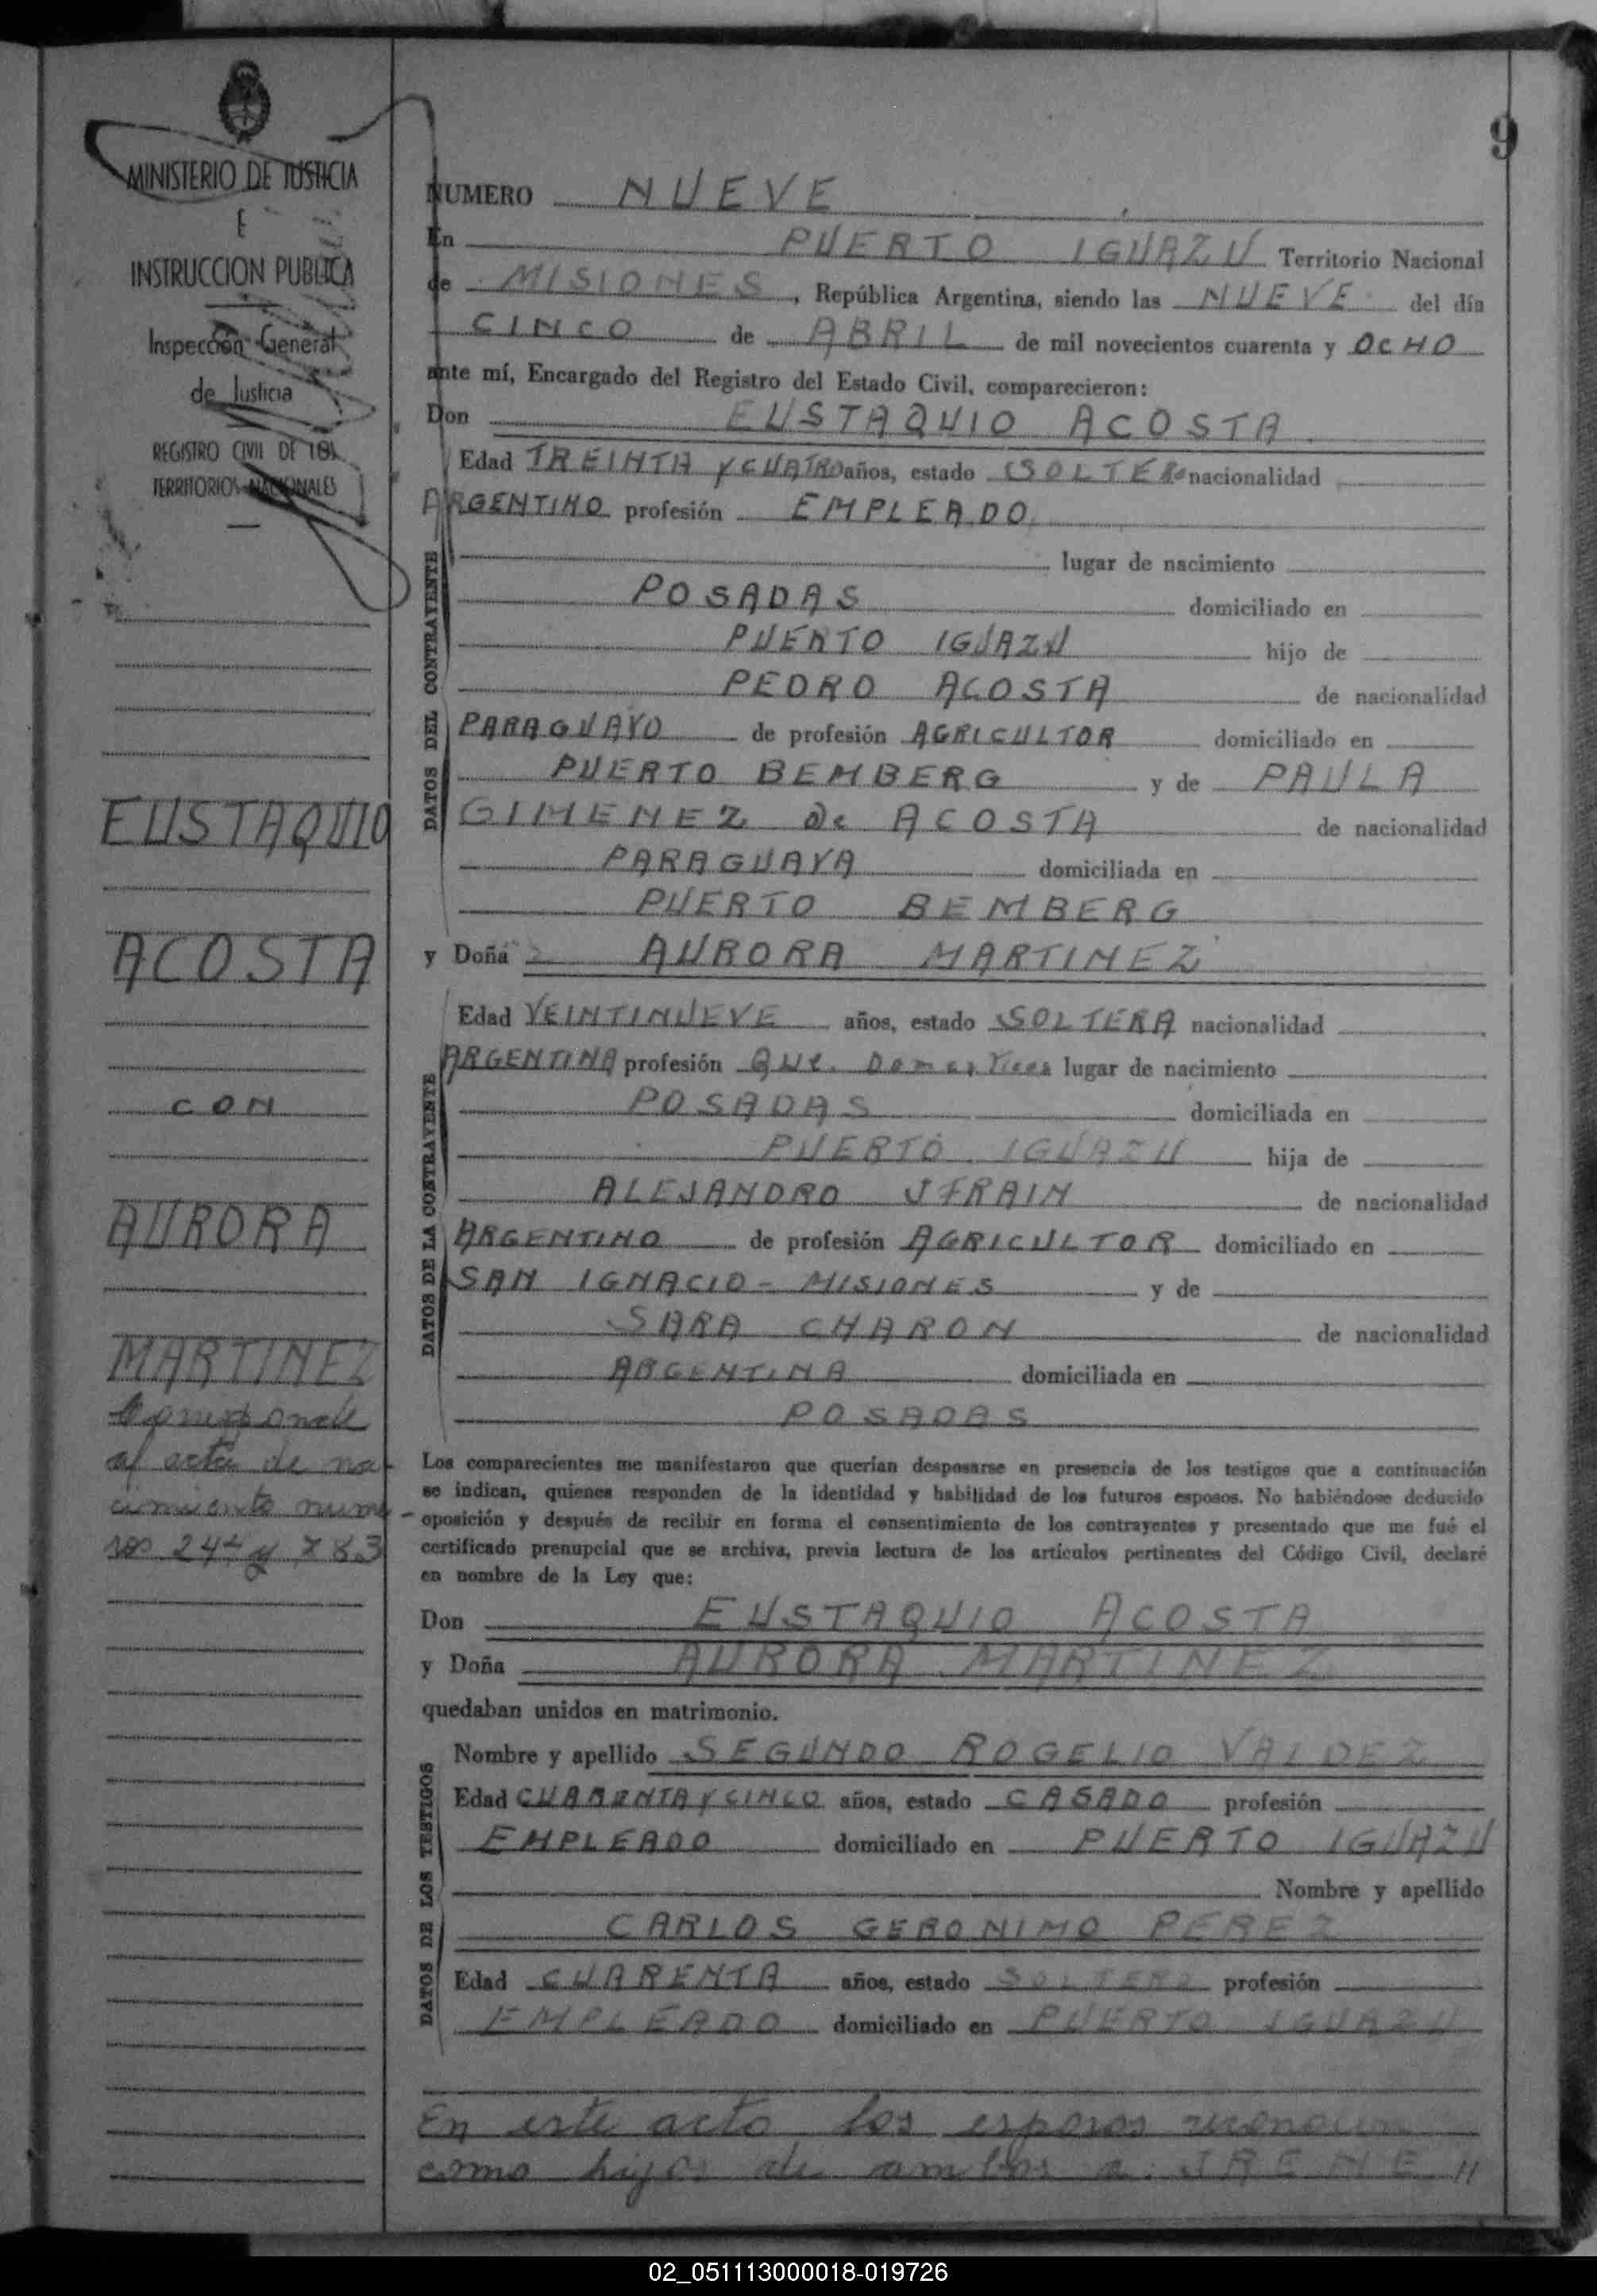 9
MINISTERIO DE JUSTICIA
E
INSTRUCCION PUBLICA
Inspección General
de Justicia
REGISTRO CIVIL DE LOS
TERRITORIOS NACIONALES
EUSTAQUIO
ACOSTA
CON
AURORA
MARTINEZ
Corresponde
al acta de na-
cimiento nume-
ros 244 y 783
NUMERO NUEVE
En PUERTO IGUAZU Territorio Nacional
de MISIONES, República Argentina, siendo las NUEVE del día
CINCO de ABRIL de mil novecientos cuarenta y OCHO
ante mí, Encargado del Registro del Estado Civil, comparecieron:
Don EUSTAQUIO ACOSTA
Edad TREINTA Y CUATRO años, estado SOLTERO nacionalidad
ARGENTINO profesión EMPLEADO
lugar de nacimiento
POSADAS domiciliado en
PUERTO IGUAZU hijo de
PEDRO ACOSTA de nacionalidad
PARAGUAYO de profesión AGRICULTOR domiciliado en
PUERTO BEMBERG y de PAULA
GIMENEZ de ACOSTA de nacionalidad
PARAGUAYA domiciliada en
PUERTO BEMBERG
DATOS DEL CONTRAYENTE
y Doña AURORA MARTINEZ
Edad VEINTINUEVE años, estado SOLTERA nacionalidad
ARGENTINA profesión QUE. Domesticos lugar de nacimiento
POSADAS domiciliada en
PUERTO IGUAZU hija de
ALEJANDRO de nacionalidad
ARGENTINO de profesión AGRICULTOR domiciliado en
SAN IGNACIO - MISIONES y de
SARA CHARON de nacionalidad
ARGENTINA domiciliada en
POSADAS
DATOS DE LA CONTRAYENTE
Los comparecientes me manifestaron que querían desposarse en presencia de los testigos que a continuación
se indican, quienes responden de la identidad y habilidad de los futuros esposos. No habiéndose deducido
oposición y después de recibir en forma el consentimiento de los contrayentes y presentado que me fué el
certificado prenupcial que se archiva, previa lectura de los artículos pertinentes del Código Civil, declaré
en nombre de la Ley que:
Don EUSTAQUIO ACOSTA
y Doña AURORA MARTINEZ
quedaban unidos en matrimonio.
Nombre y apellido SEGUNDO ROGELIO VALDEZ
Edad CUARENTA Y CINCO años, estado CASADO profesión
EMPLEADO domiciliado en PUERTO IGUAZU
Nombre y apellido
CARLOS GERONIMO PEREZ
Edad CUARENTA años, estado SOLTERO profesión
EMPLEADO domiciliado en PUERTO IGUAZU
DATOS DE LOS TESTIGOS
En este acto los esposos reconocen
como hijos de ambos a: IRENE //
02_051113000018-019726